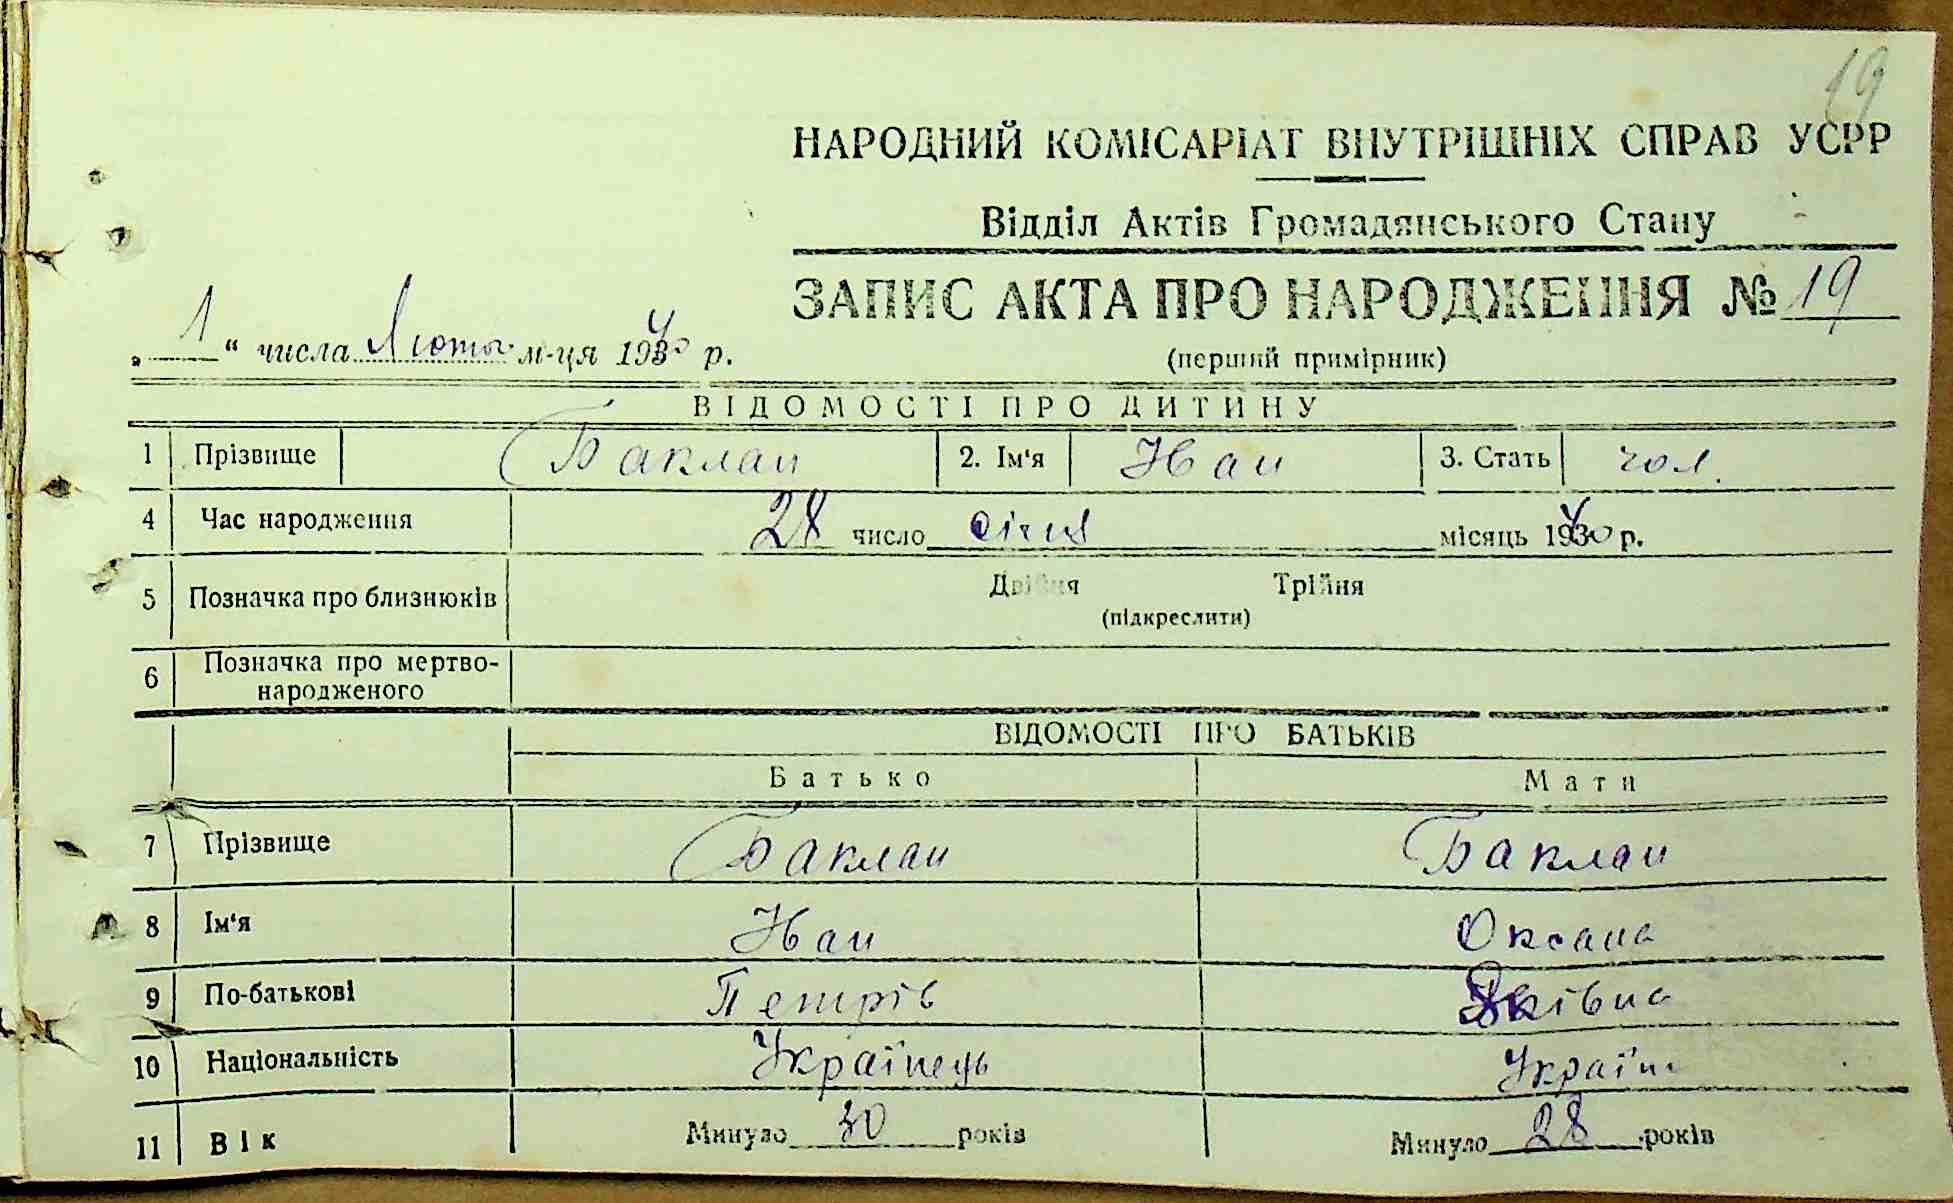 19
НАРОДНИЙ КОМІСАРІАТ ВНУТРІШНІХ СПРАВ УСРР
Відділ Актів Громадянського Стану
ЗАПИС АКТА ПРО НАРОДЖЕННЯ № 19
„ 1 “ числа Люто м-ця 1940 р.
(перший примірник)
ВІДОМОСТІ ПРО ДИТИНУ
1 Прізвище Баклан 2. Ім'я Іван 3. Стать чол.
4 Час народження 28 число січня місяць 1940 р.
5 Позначка про близнюків Двійня Трійня
(підкреслити)
6 Позначка про мертво-
народженого
ВІДОМОСТІ ПРО БАТЬКІВ
Батько Мати
7 Прізвище Баклан Баклан
8 Ім'я Іван Оксана
9 По-батькові Петрів Яківна
10 Національність Українець Україн
11 Вік Минуло 30 років Минуло 28 років